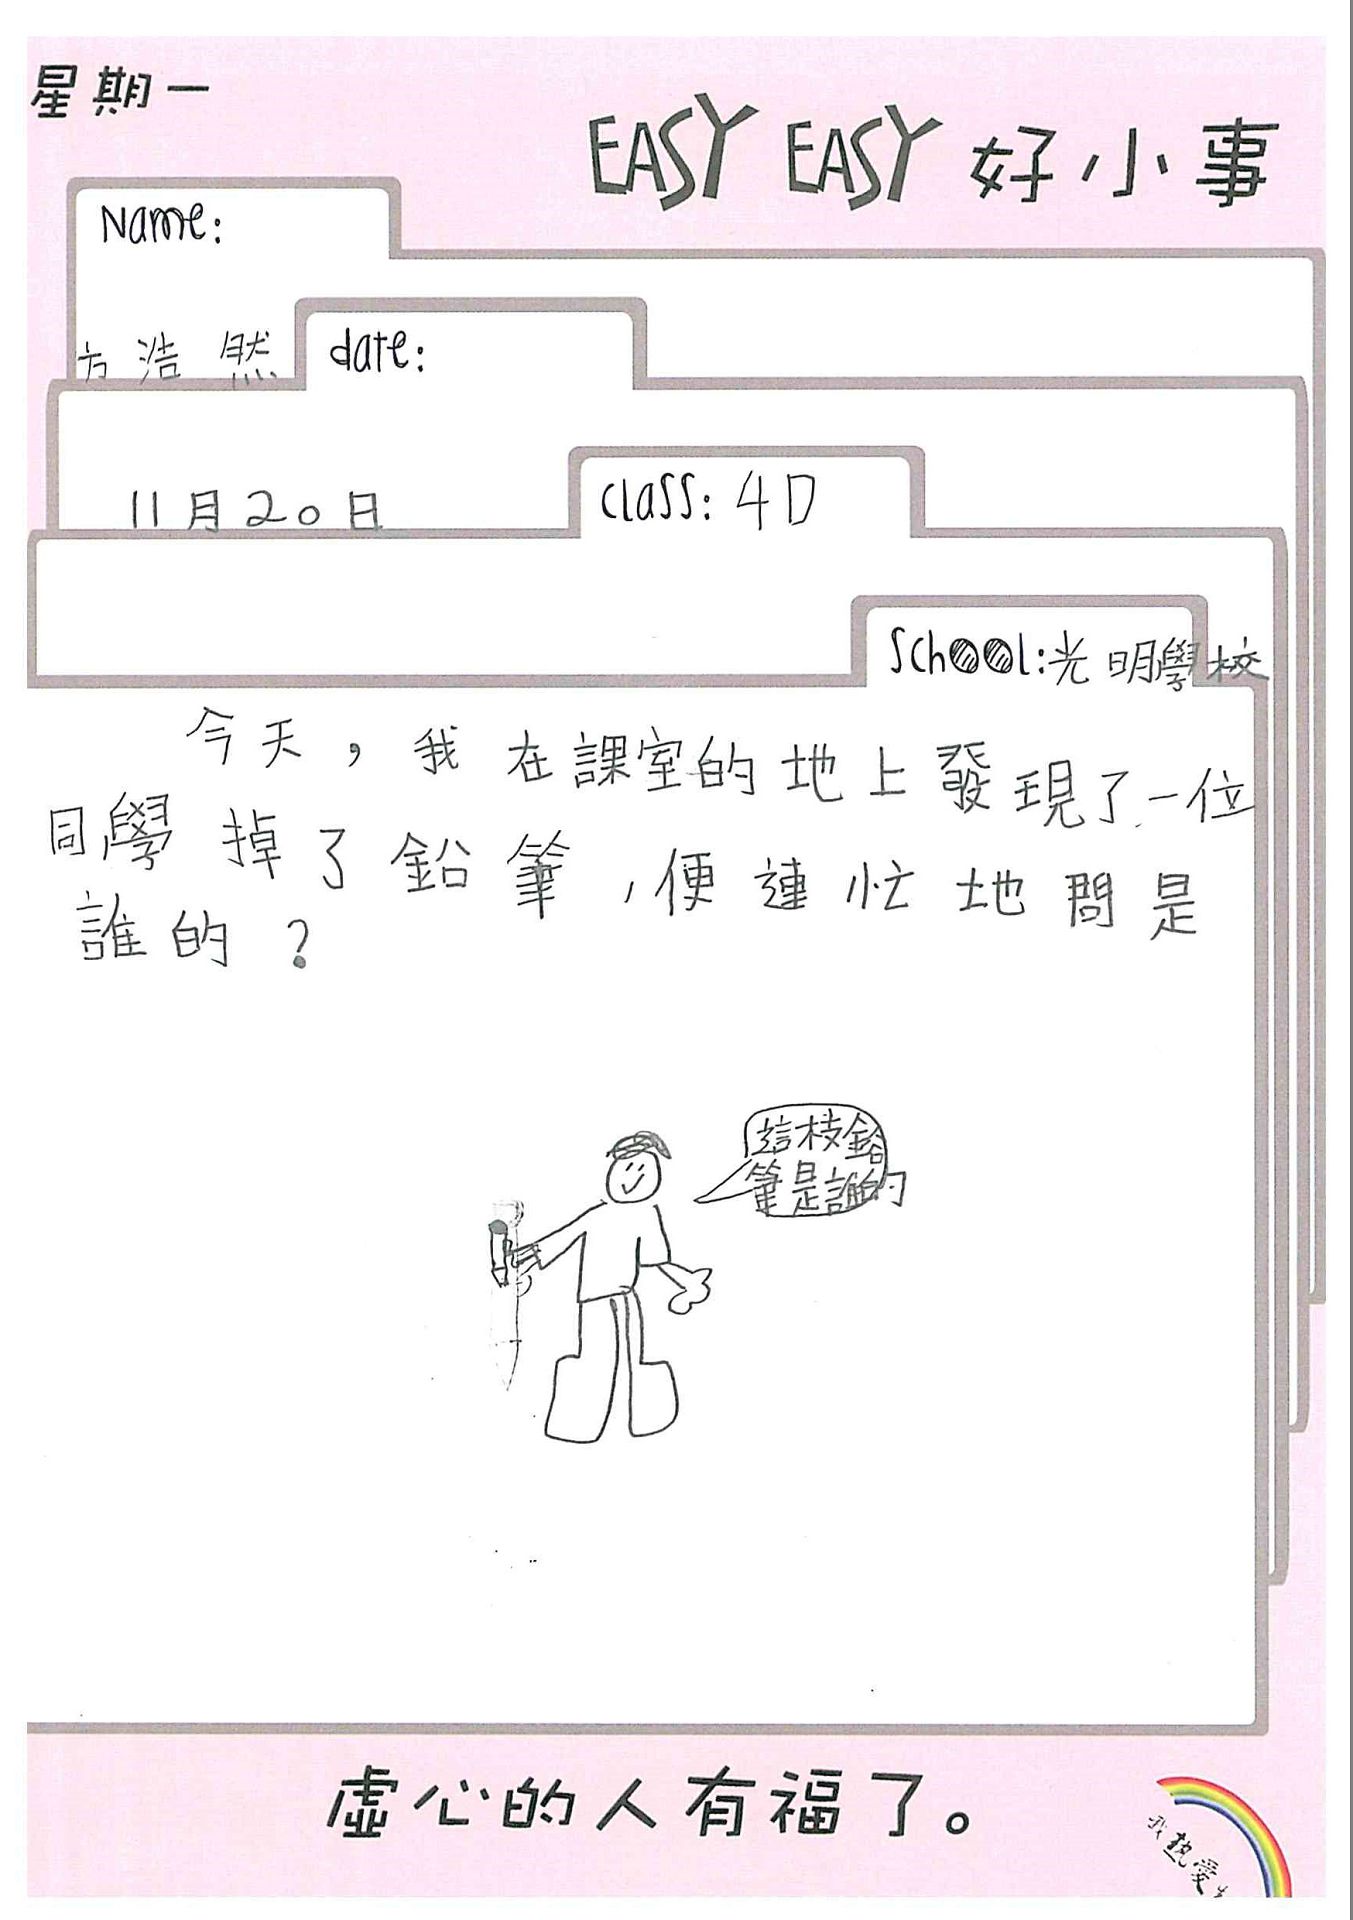 星期一
EASY EASY 好小事
Name:
方浩然
date:
11月20日
class: 4D
School:光明學校
今天，我在課室的地上發現了一位
同學掉了鉛筆，便連忙地問是
誰的？
這枝鉛
筆是誰的
虛心的人有福了。
我熱愛